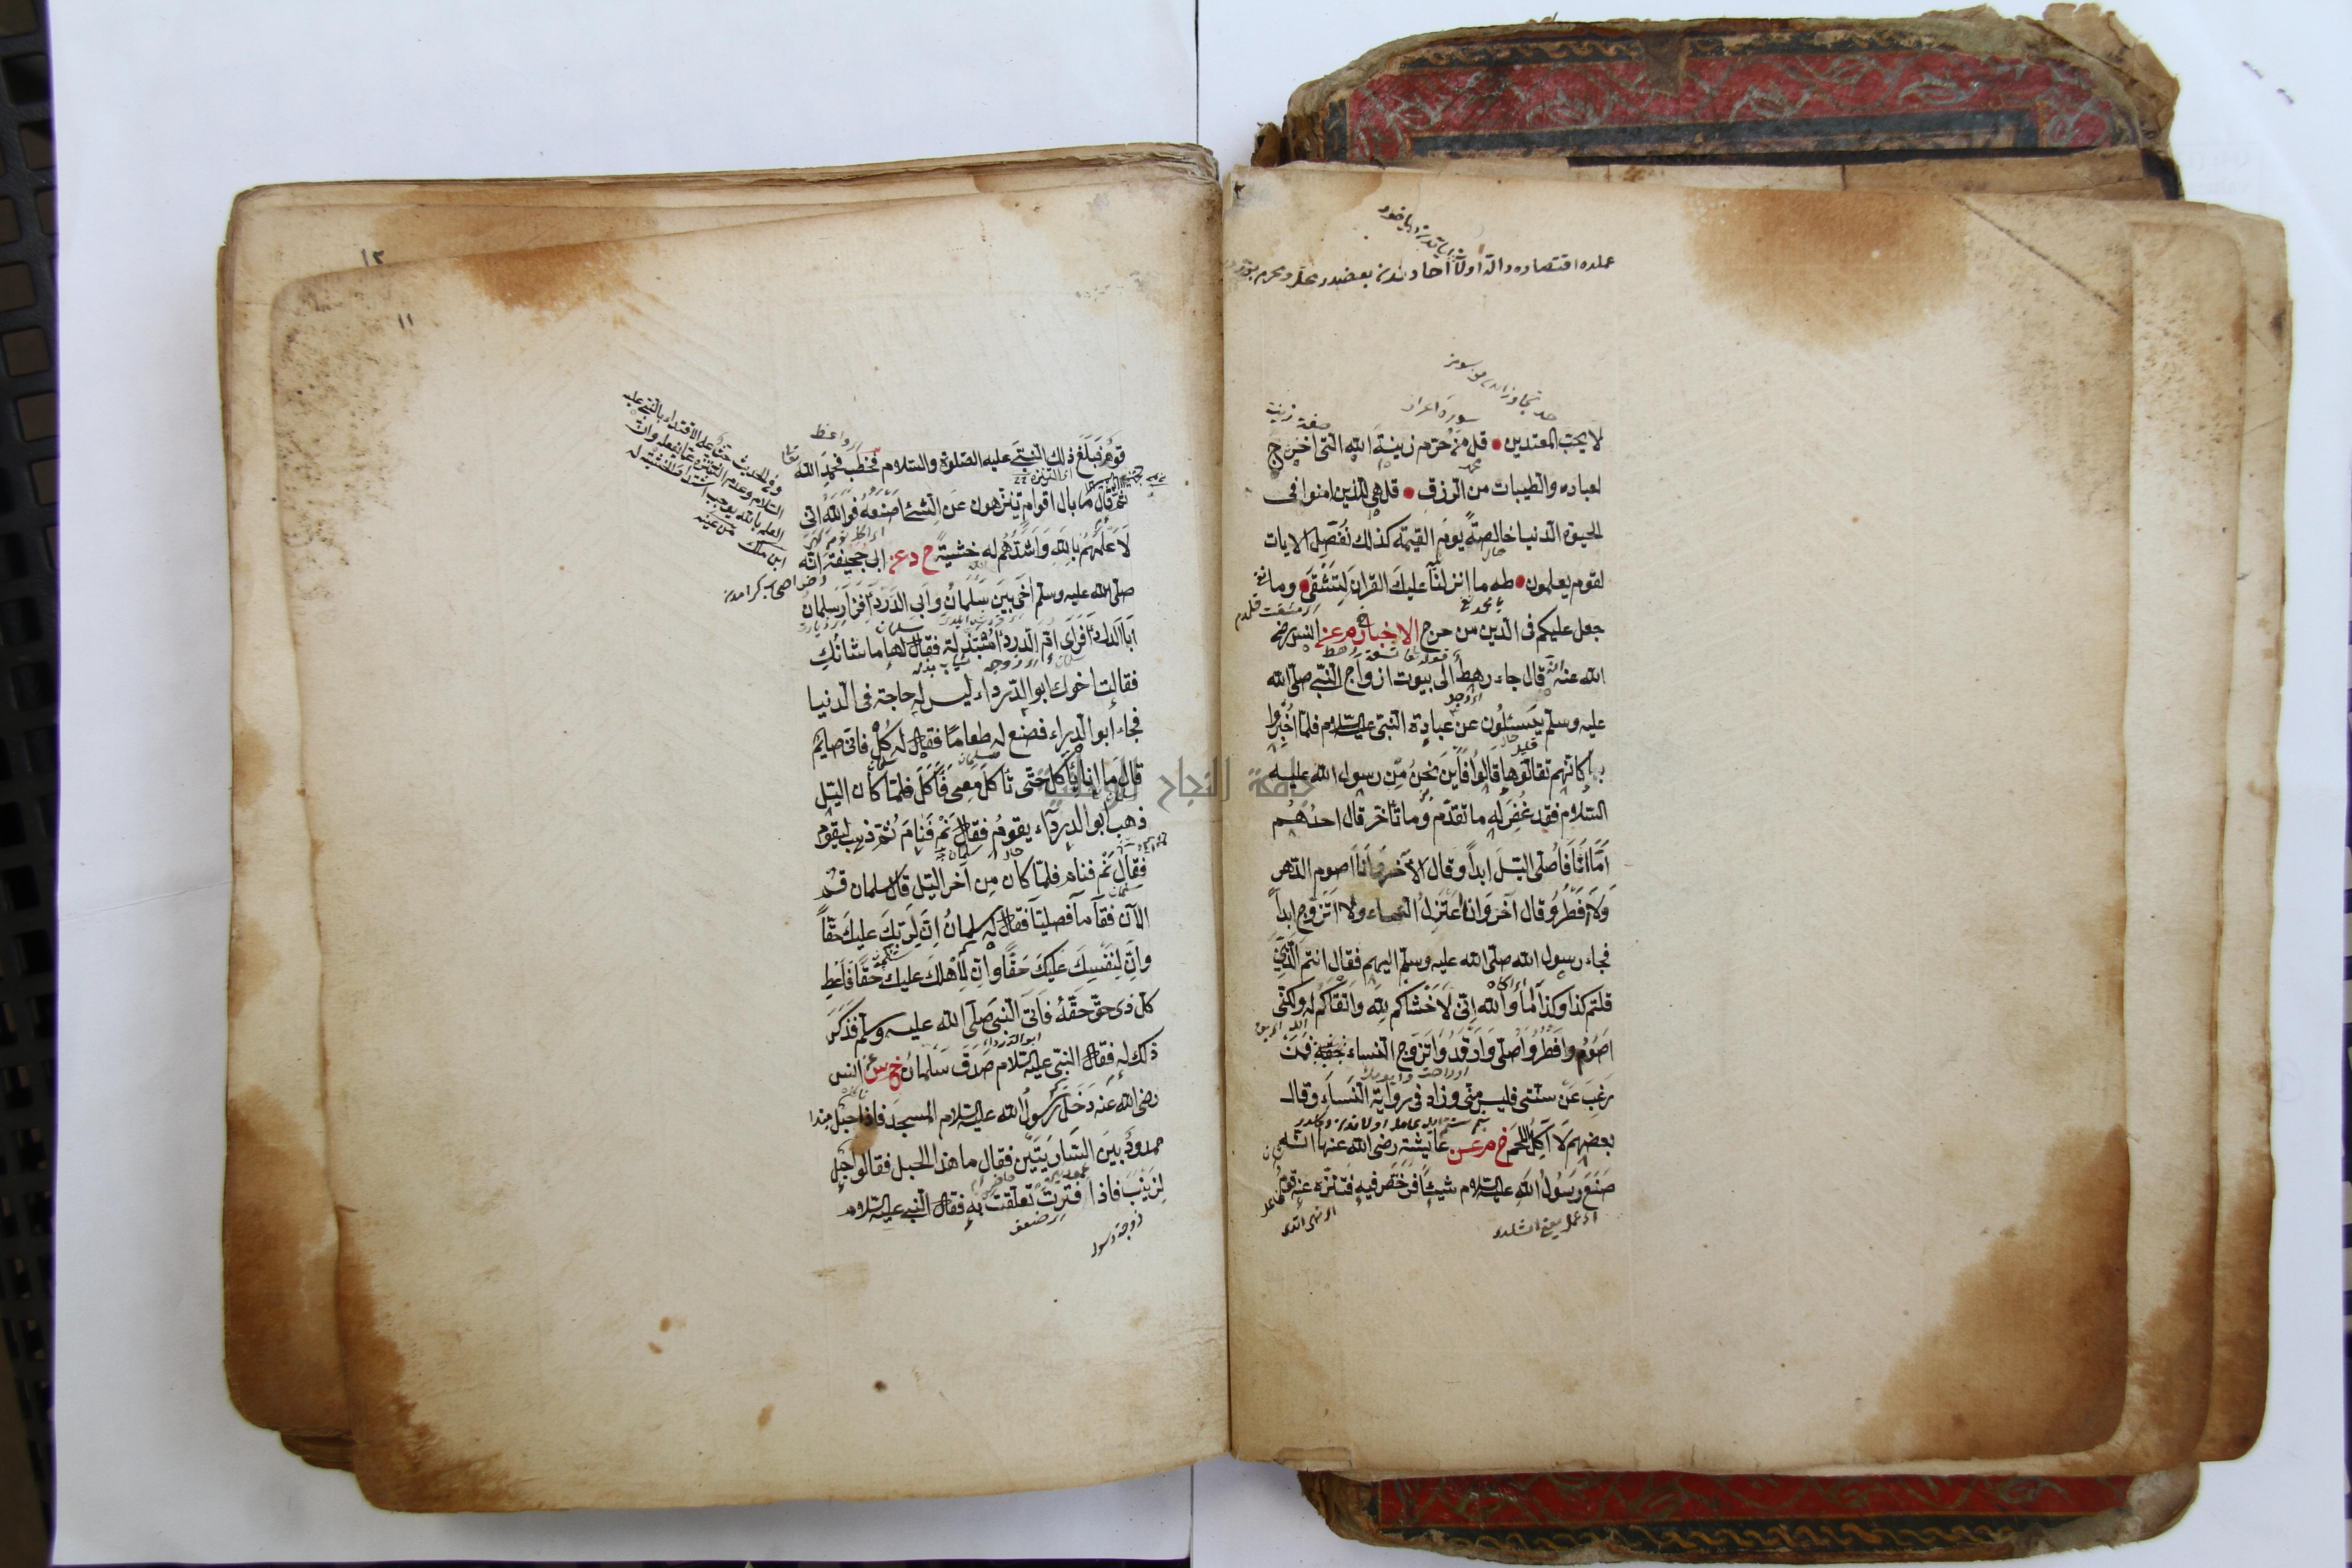 عملده اقتصاده دائر اولان احاديثدن بعضيدر
سورة اعراف
صفة زينت
لا يحب المعتدين • قل من حرم زينة الله التى اخرج
لعباده والطيبات من الرزق • قل هى للذين امنوا فى
الحيوة الدنيا خالصة يوم القيمة كذلك نفصل الايات
لقوم يعلمون • طه ما انزلنا عليك القران لتشقى • وما
جعل عليكم فى الدين من حرج الاخبار خ م عن انس رضى
الله عنه انه قال جاء رهط الى بيوت ازواج النبى صلى الله
عليه وسلم يسئلون عن عبادة النبى عليه السلام فلما اخبروا
بها كانهم تقالوها قالوا فاين نحن من رسول الله عليه
السلام فقد غفر له ما تقدم وما تاخر قال احدهم
اما انا فاصلى اليل ابدا وقال الاخر وانا اصوم الدهر
ولا افطر وقال اخر وانا اعتزل النساء ولا اتزوج ابدا
فجاء رسول الله صلى الله عليه وسلم اليهم فقال انتم الذين
قلتم كذا وكذا اما والله انى لاخشاكم لله واتقاكم له ولكنى
اصوم وافطر واصلى وارقد واتزوج النساء فمن
رغب عن سنتى فليس منى وزاد فى رواية النساء وقال
بعضهم لا اكل اللحم خ م عن عايشة رضى الله عنها انها
صنع رسول الله عليه السلام شيئا فرخص فيه فتنزه عنه قوم
١٢
١١
اى واعظ
قوم فبلغ ذلك النبى عليه الصلوة والسلام فخطب فحمد الله
تعالى
ثم قال ما بال اقوام يتنزهون عن الشئ اصنعه فوالله انى
لاعلمهم بالله واشدهم له خشية خ د عن ابى جحيفة انه
صلى الله عليه وسلم اخى بين سلمان وابى الدرداء فزار سلمان
ابا الدرداء فراى ام الدرداء متبذلة فقال لها ما شانك
فقالت اخوك ابو الدرداء ليس له حاجة فى الدنيا
فجاء ابو الدرداء فصنع له طعاما فقال له كل فانى صائم
قال ما انا باكل حتى تاكل معى فاكل فلما كان اليل
ذهب ابو الدرداء يقوم فقال نم فنام ثم ذهب ليقوم
فقال نم فنام فلما كان من اخر اليل قال سلمان قم
الان فقاما فصليا فقال له سلمان ان لربك عليك حقا
وان لنفسك عليك حقا وان لاهلك عليك حقا فاعط
كل ذى حق حقه فاتى النبى صلى الله عليه وسلم فذكر
ذلك له فقال النبى عليه السلام صدق سلمان خ س عن انس
رضى الله عنه دخل رسول الله عليه السلام المسجد فاذا حبل
ممدود بين الساريتين فقال ما هذا الحبل فقالوا حبل
لزينب فاذا فترت تعلقت به فقال النبى عليه السلام
زوجة رسول
وفى الحديث حث على الاقتداء بالنبى عليه
السلام وعدم التنزه عما فعله وان
العلم بالله يوجب اشتداد الخشية له
ابن ملك
جامعة النجاح الوطنية